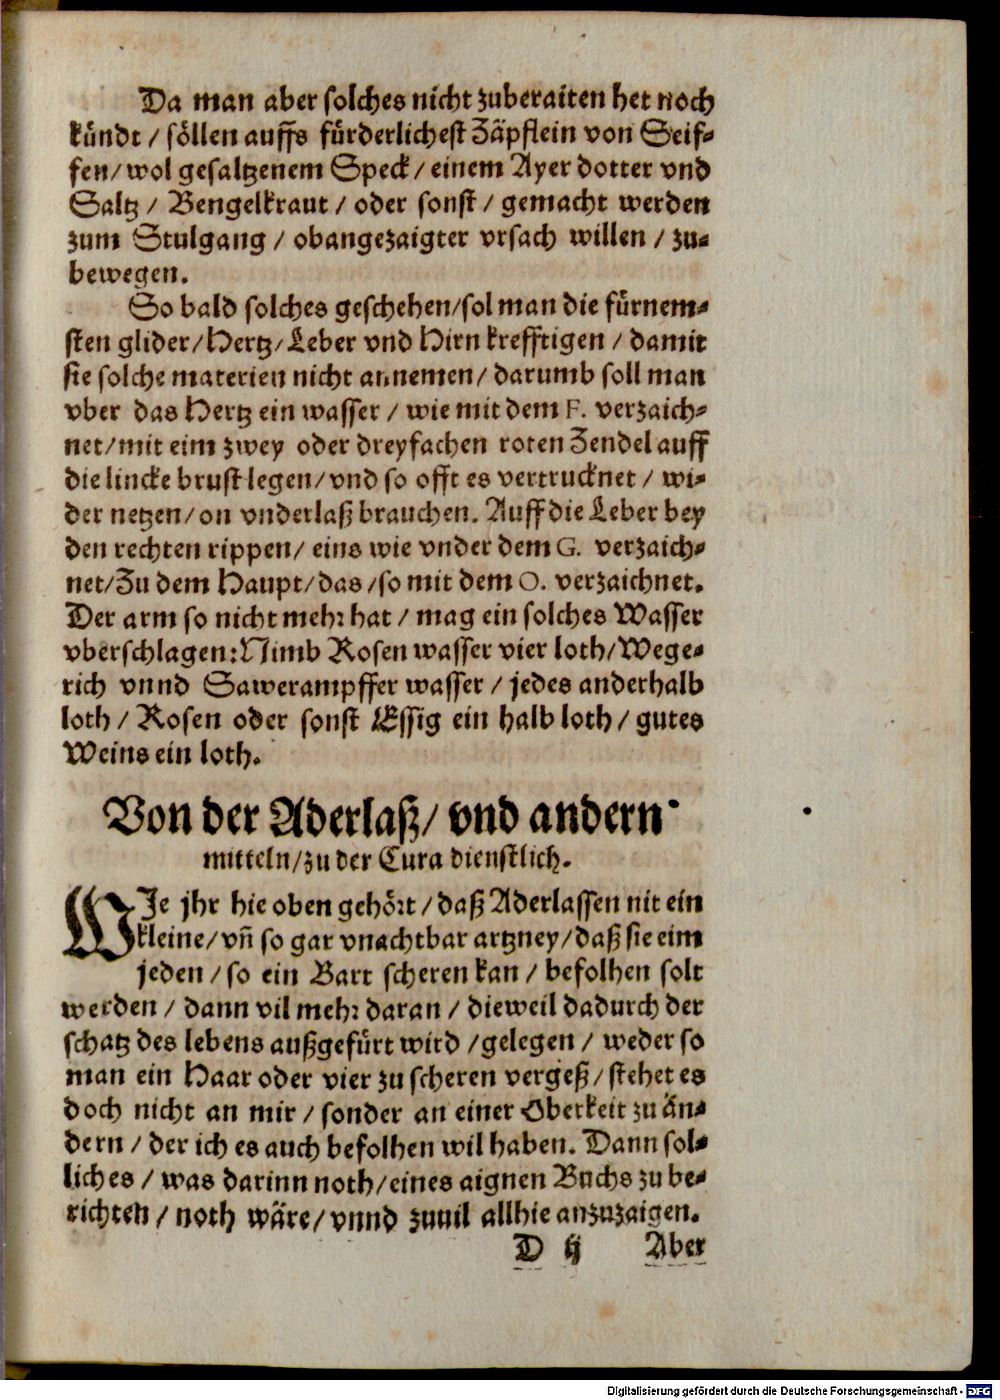 Da man aber solches nicht zuberaiten het noch
kündt / söllen auffs fürderlichest Zäpflein von Seif-
fen / wol gesaltzenem Speck / einem Ayer dotter vnd
Saltz / Bengelkraut / oder sonst / gemacht werden
zum Stulgang / obangezaigter vrsach willen / zu-
bewegen.
So bald solches geschehen / sol man die fürnem-
sten glider / Hertz / Leber vnd Hirn krefftigen / damit
sie solche materien nicht annemen / darumb soll man
vber das Hertz ein wasser / wie mit dem F. verzaich-
net / mit eim zwey oder dreyfachen roten Zendel auff
die lincke brust legen / vnd so offt es vertrucknet / wi-
der netzen / on vnderlaß brauchen. Auff die Leber bey
den rechten rippen / eins wie vnder dem G. verzaich-
net / Zu dem Haupt / das / so mit dem O. verzaichnet.
Der arm so nicht mehr hat / mag ein solches Wasser
vberschlagen: Nimb Rosen wasser vier loth / Wege-
rich vnnd Sawerampffer wasser / jedes anderhalb
loth / Rosen oder sonst Essig ein halb loth / gutes
Weins ein loth.
Von der Aderlaß / vnd andern
mitteln / zu der Cura dienstlich.
WJe jhr hie oben gehört / daß Aderlassen nit ein
kleine / vñ so gar vnachtbar artzney / daß sie eim
jeden / so ein Bart scheren kan / befolhen solt
werden / dann vil mehr daran / dieweil dadurch der
schatz des lebens außgefürt wird / gelegen / weder so
man ein Haar oder vier zu scheren vergeß / stehet es
doch nicht an mir / sonder an einer Oberkeit zu än-
dern / der ich es auch befolhen wil haben. Dann sol-
liches / was darinn noth / eines aignen Buchs zu be-
richten / noth wäre / vnnd zuuil allhie anzuzaigen.
D ij Aber
Digitalisierung gefördert durch die Deutsche Forschungsgemeinschaft - DFG